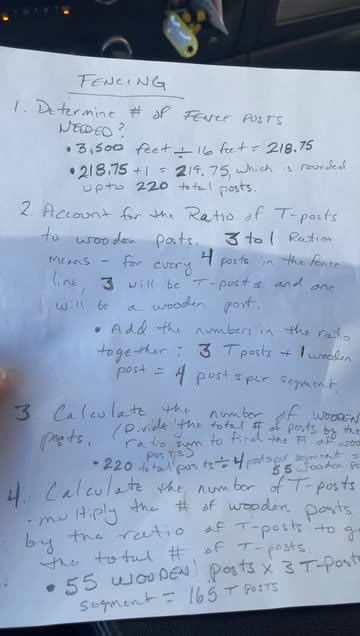 FENCING
1. Determine # of FENCE POSTS
NEEDED?
• 3,500 feet ÷ 16 feet = 218.75
• 218.75 + 1 = 219.75, which is rounded
up to 220 total posts.
2. Account for the Ratio of T-posts
to wooden posts. 3 to 1 Ration
means - for every 4 posts in the fence
line, 3 will be T-posts and one
will be a wooden post.
• Add the numbers in the ratio
together: 3 T posts + 1 wooden
post = 4 posts per segment.
3. Calculate the number of WOODEN
posts. (Divide the total # of posts by the
ratio sum to find the # of
posts)
• 220 total posts ÷ 4 posts per segment =
55 wooden
4. Calculate the number of T-posts
- multiply the # of wooden posts
by the ratio of T-posts to
the total # of T-posts.
• 55 WOODEN posts x 3 T-posts
segment = 165 T POSTS